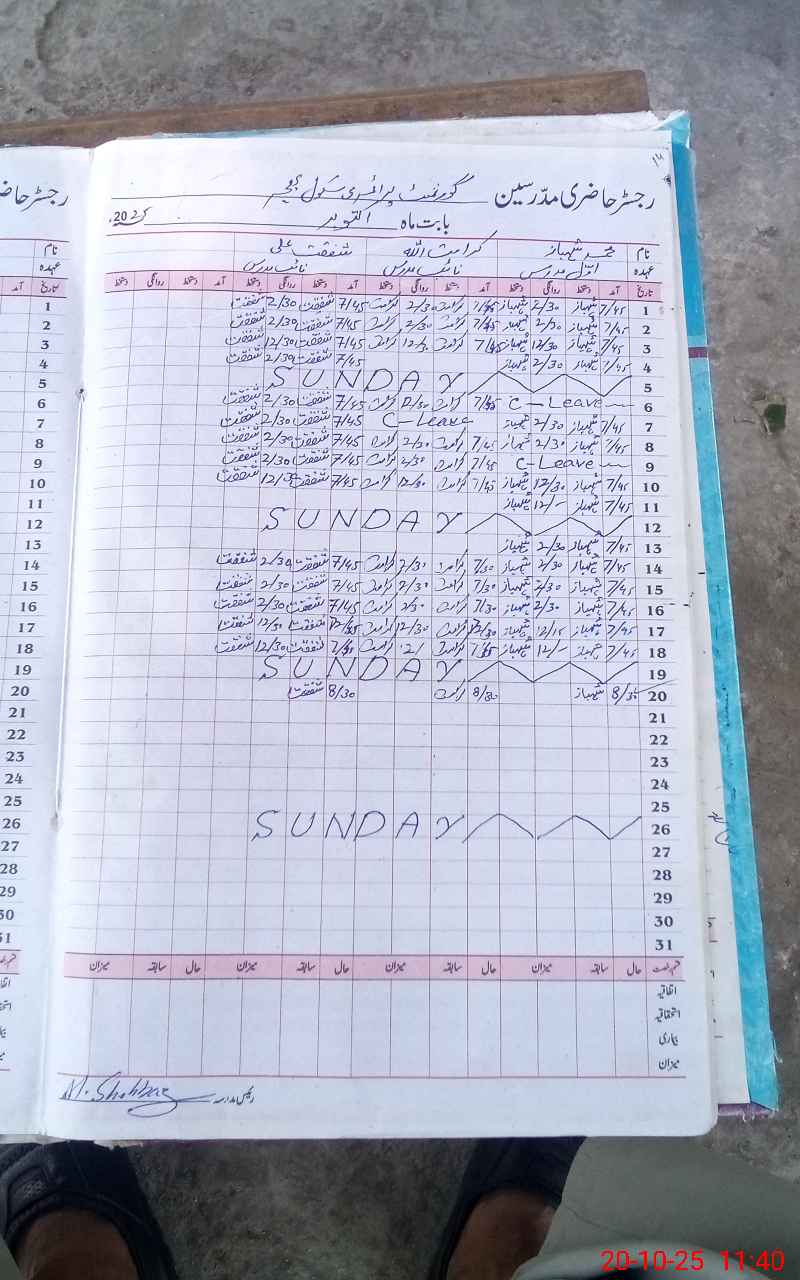 رجسٹر حاضری مدرسین گورنمنٹ پرائمری سکول
بابت ماہ اکتوبر 2025ء
نام محمد شہباز کرامت اللہ شفقت علی
عہدہ نائب مدرس نائب مدرس
تاریخ آمد دستخط روانگی دستخط آمد دستخط روانگی دستخط آمد دستخط روانگی دستخط آمد دستخط روانگی دستخط
1 7/45 شہباز 2/30 شہباز 7/45 کرامت 2/30 کرامت 7/45 شفقت 2/30 شفقت
2 7/45 شہباز 2/30 شہباز 7/45 کرامت 2/30 کرامت 7/45 شفقت 2/30 شفقت
3 7/45 شہباز 12/30 شہباز 7/45 کرامت 12/30 کرامت 7/45 شفقت 12/30 شفقت
4 7/45 شہباز 2/30 شہباز 7/45 شفقت 2/30 شفقت
5 SUNDAY
6 C-Leave 7/45 کرامت کرامت 7/45 شفقت 2/30 شفقت
7 7/45 شہباز 2/30 شہباز C-Leave 7/45 شفقت 2/30 شفقت
8 7/45 شہباز 2/30 شہباز 7/45 کرامت 2/30 کرامت 7/45 شفقت 2/30 شفقت
9 C-Leave 7/45 کرامت 2/30 کرامت 7/45 شفقت 2/30 شفقت
10 7/45 شہباز 12/30 شہباز 7/45 کرامت 12/30 کرامت 7/45 شفقت 12/30 شفقت
11 7/45 شہباز 12/- شہباز
12 SUNDAY
13 7/45 شہباز 2/30 شہباز
14 7/45 شہباز 2/30 شہباز 7/30 کرامت 2/30 کرامت 7/45 شفقت 2/30 شفقت
15 7/45 شہباز 2/30 شہباز 7/30 کرامت 2/30 کرامت 7/45 شفقت 2/30 شفقت
16 7/45 شہباز 2/30 شہباز 7/30 کرامت 2/30 کرامت 7/45 شفقت 2/30 شفقت
17 7/45 شہباز 12/15 شہباز کرامت 12/30 کرامت شفقت 12/30 شفقت
18 7/45 شہباز 12/- شہباز 7/45 کرامت کرامت شفقت 12/30 شفقت
19 SUNDAY
20 8/30 شہباز 8/30 کرامت 8/30 شفقت
21
22
23
24
25
26 SUNDAY
27
28
29
30
31
قسم رخصت حال سابقہ میزان حال سابقہ میزان حال سابقہ میزان حال سابقہ میزان
اتفاقیہ
استحقاقیہ
بیماری
میزان
رئیس مدرسہ M. Shahbaz
20-10-25 11:40